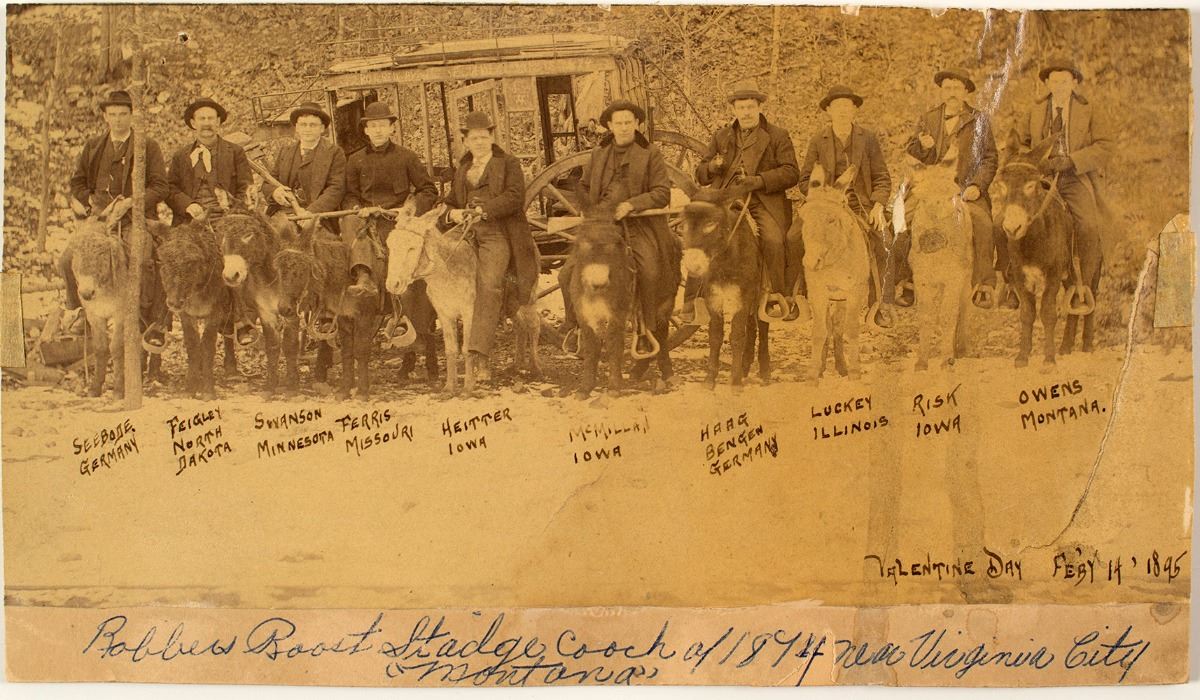 SEEBODE
GERMANY
FEIGLEY
NORTH
DAKOTA
SWANSON
MINNESOTA
FERRIS
MISSOURI
HEITTER
IOWA
McMILLAN
IOWA
HAAG
BENGEN
GERMANY
LUCKEY
ILLINOIS
RISK
IOWA
OWENS
MONTANA.
VALENTINE DAY FEB'Y 14' 1895
Robbers Roost Stadge cooch of 1874 near Virginia City
"Montana"